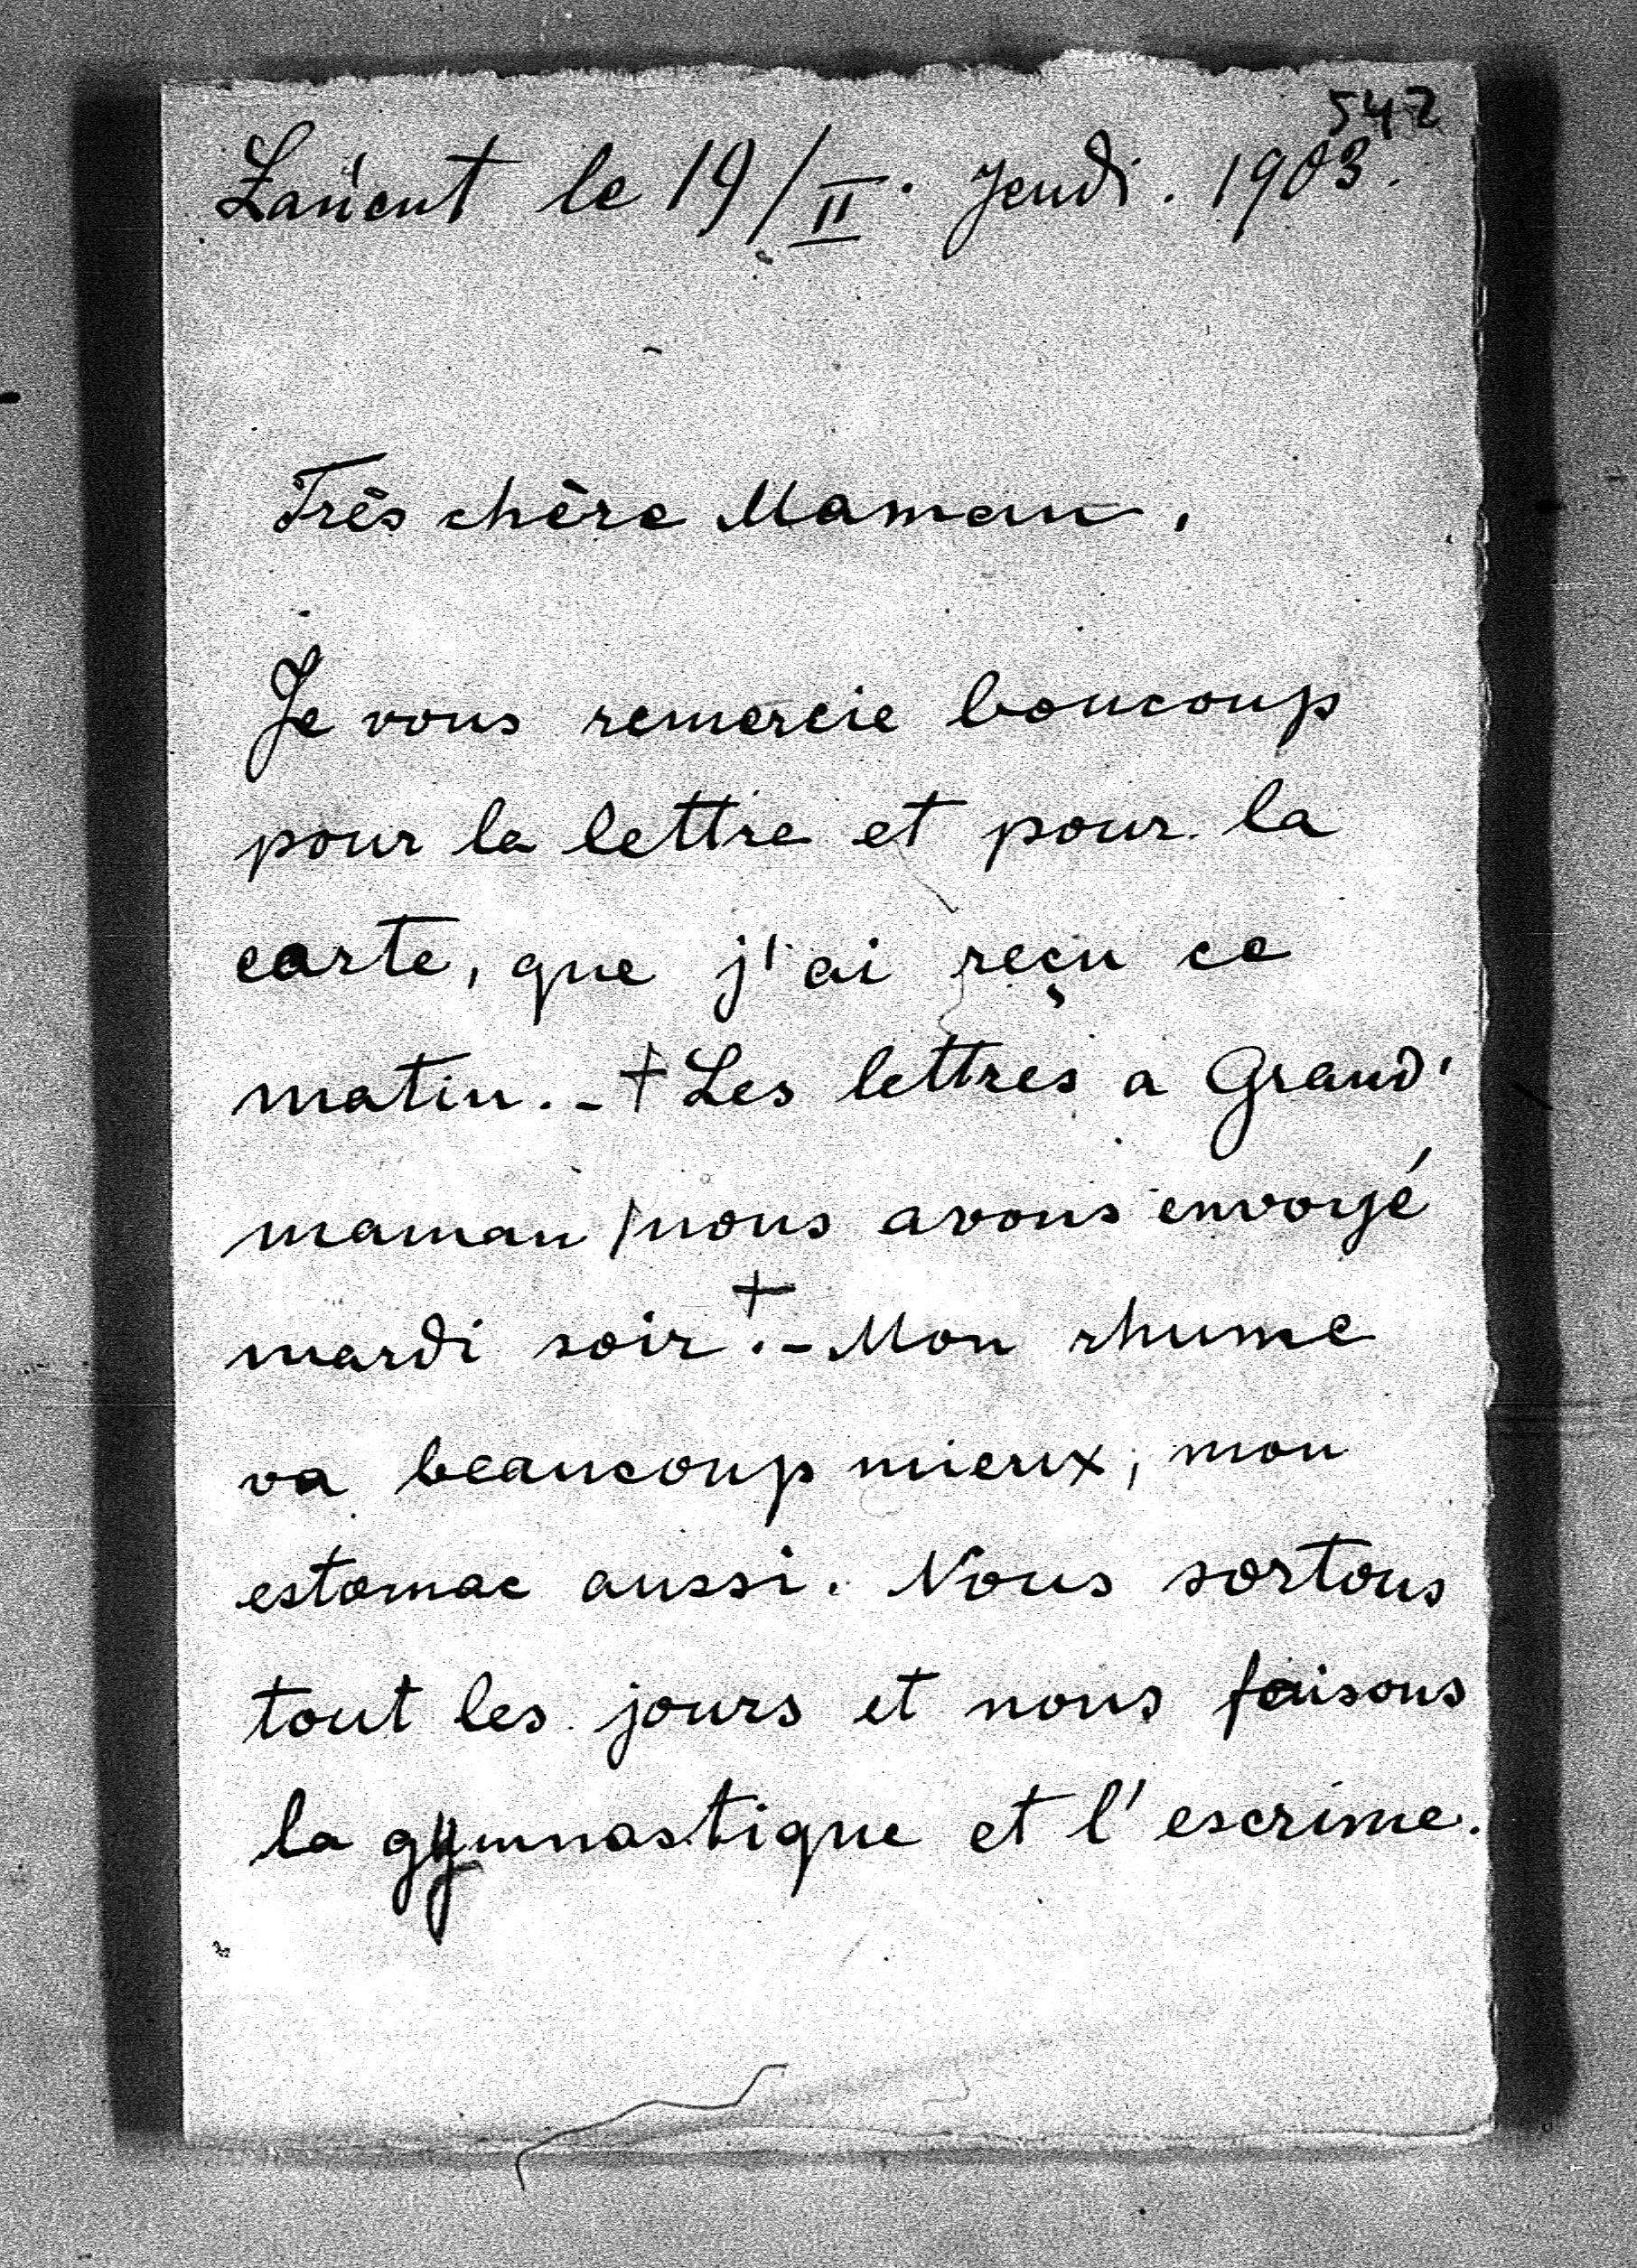 542
Łańcut le 19/II. Jeudi. 1903.
Très chère Maman.
Je vous remercie boucoup
pour la lettre et pour la
carte, que j'ai reçu ce
matin. - + Les lettres a Grand'
maman / nous avons envoyé
mardi soir +. - Mon rhume
va beaucoup mieux, mon
estomac aussi. Nous sortons
tout les jours et nous faisons
la gymnastique et l'escrime.